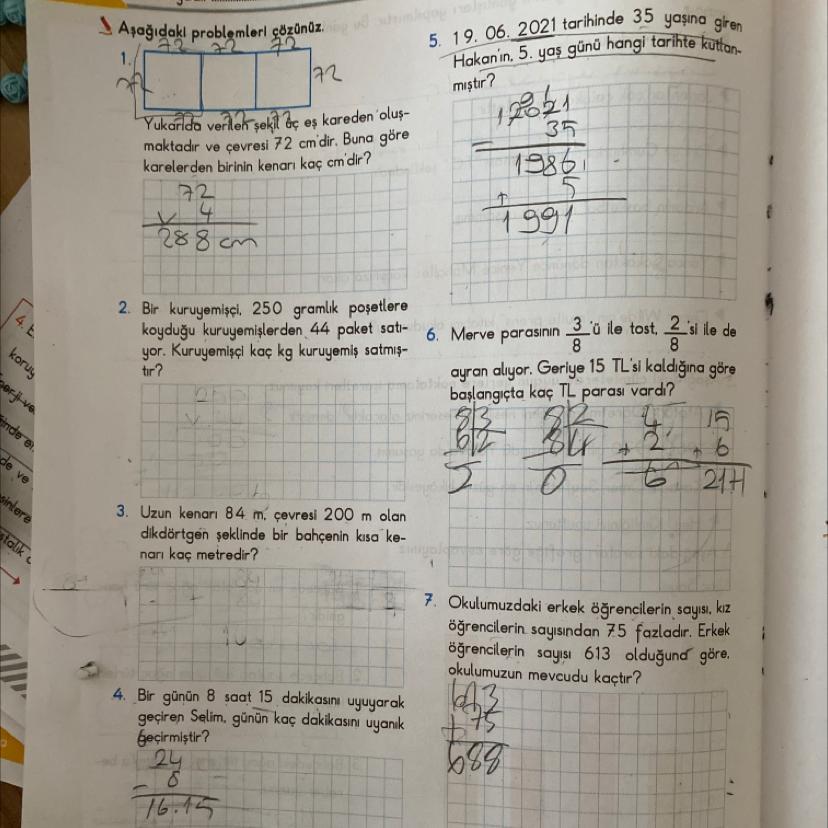 Aşağıdaki problemleri çözünüz.
72 72 72
1.
72 72
72 72 72
Yukarıda verilen şekil üç eş kareden oluş-
maktadır ve çevresi 72 cm'dir. Buna göre
karelerden birinin kenarı kaç cm'dir?
72
4
288 cm
2. Bir kuruyemişçi, 250 gramlık poşetlere
koyduğu kuruyemişlerden 44 paket satı-
yor. Kuruyemişçi kaç kg kuruyemiş satmış-
tır?
3. Uzun kenarı 84 m, çevresi 200 m olan
dikdörtgen şeklinde bir bahçenin kısa ke-
narı kaç metredir?
4. Bir günün 8 saat 15 dakikasını uyuyarak
geçiren Selim, günün kaç dakikasını uyanık
geçirmiştir?
24
- 8
16.15
5. 19. 06. 2021 tarihinde 35 yaşına giren
Hakan'ın, 5. yaş günü hangi tarihte kutlan-
mıştır?
35
1986
+ 5
1991
6. Merve parasının 3/8 'ü ile tost, 2/8 'si ile de
ayran alıyor. Geriye 15 TL'si kaldığına göre
başlangıçta kaç TL parası vardı?
4 15
+ 2 + 6
6
7. Okulumuzdaki erkek öğrencilerin sayısı, kız
öğrencilerin sayısından 75 fazladır. Erkek
öğrencilerin sayısı 613 olduğuna göre,
okulumuzun mevcudu kaçtır?
613
+ 75
688
4. E
koruy